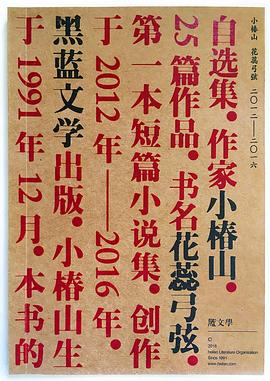 小椿山 花蕊弓弦 二〇一二——二〇一六
自选集。作家小椿山。
25 篇作品。书名花蕊弓弦。
第一本短篇小说集。创作
于 2012 年——2016 年。
黑蓝文学出版。小椿山生
于 1991 年 12 月。本书的
文學
©
heilan Literature Organisation
Since 1991
www.heilan.com